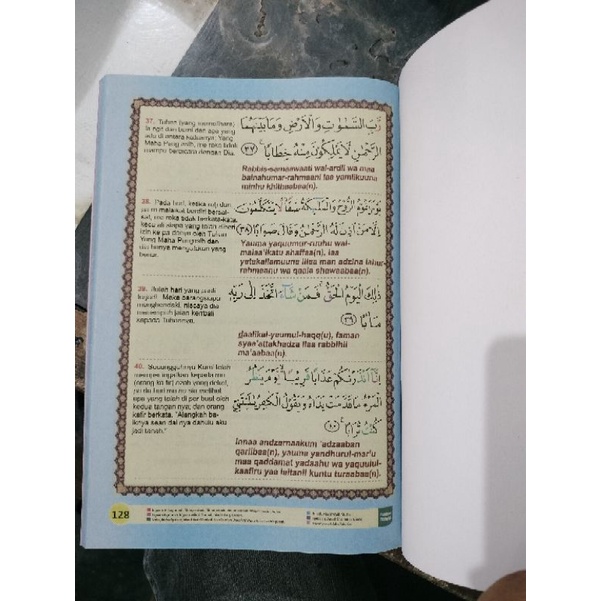 37. Tuhan (yang memelihara)
langit dan bumi dan apa yang
ada di antara keduanya; Yang
Maha Pengasih, mereka tidak
mampu berbicara dengan Dia.
رَّبِّ السَّمٰوٰتِ وَالْاَرْضِ وَمَا بَيْنَهُمَا
الرَّحْمٰنِ لَا يَمْلِكُوْنَ مِنْهُ خِطَابًا ۚ ﴿٣٧﴾
Rabbis-samaawaati wal-ardli wa maa
bainahumar-rahmaani laa yamlikuuna
minhu khithaabaa(n).
38. Pada hari, ketika roh dan
para malaikat berdiri bersaf-
saf, mereka tidak berkata-kata,
kecuali siapa yang telah diberi
izin kepadanya oleh Tuhan
Yang Maha Pengasih dan
dia hanya mengatakan yang
benar.
يَوْمَ يَقُوْمُ الرُّوْحُ وَالْمَلٰۤىِٕكَةُ صَفًّا ۙ لَّا يَتَكَلَّمُوْنَ
اِلَّا مَنْ اَذِنَ لَهُ الرَّحْمٰنُ وَقَالَ صَوَابًا ﴿٣٨﴾
Yauma yaquumur-ruuhu wal-
malaa'ikatu shaffaa(n), laa
yatakallamuuna illaa man adzina lahur-
rahmaanu wa qaala shawaabaa(n).
39. Itulah hari yang pasti
terjadi. Maka barangsiapa
menghendaki, niscaya dia
menempuh jalan kembali
kepada Tuhannya.
ذٰلِكَ الْيَوْمُ الْحَقُّ ۚ فَمَنْ شَاۤءَ اتَّخَذَ اِلٰى رَبِّهٖ
مَاٰبًا ﴿٣٩﴾
dzaalikal-yaumul-haqq(u), faman
syaa'attakhadza ilaa rabbihii
ma'aabaa(n).
40. Sesungguhnya Kami telah
memperingatkan kepadamu
(orang kafir) azab yang dekat,
pada hari manusia melihat
apa yang telah diperbuat oleh
kedua tangannya; dan orang
kafir berkata, "Alangkah ba-
iknya seandainya dahulu aku
jadi tanah."
اِنَّآ اَنْذَرْنٰكُمْ عَذَابًا قَرِيْبًا ۙ يَّوْمَ يَنْظُرُ
الْمَرْءُ مَا قَدَّمَتْ يَدٰهُ وَيَقُوْلُ الْكٰفِرُ يٰلَيْتَنِيْ
كُنْتُ تُرَابًا ﴿٤٠﴾
Innaa andzarnaakum 'adzaaban
qariibaa(n), yauma yandhurul-mar'u
maa qaddamat yadaahu wa yaquulul-
kaafiru yaa laitanii kuntu turaabaa(n).
128